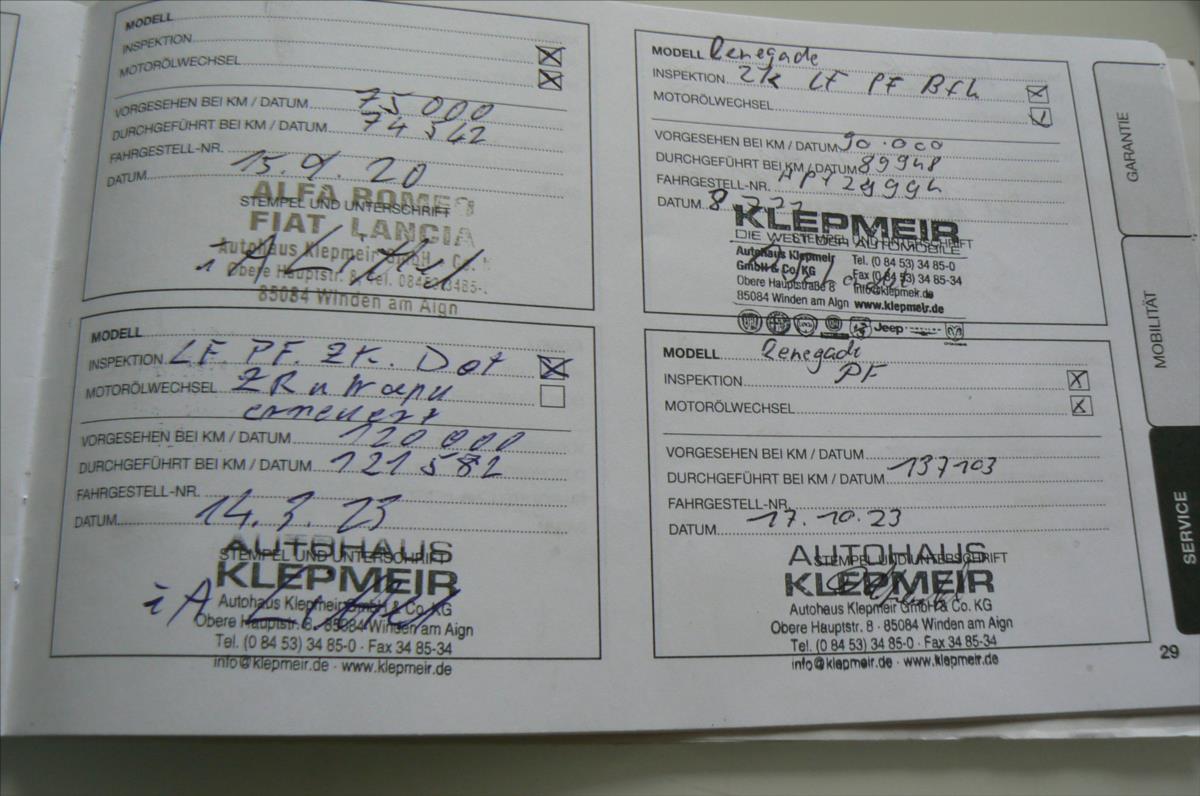 MODELL
INSPEKTION
MOTORÖLWECHSEL
VORGESEHEN BEI KM / DATUM 75000
DURCHGEFÜHRT BEI KM / DATUM 74542
FAHRGESTELL-NR.
DATUM 15.9.20
ALFA ROMEO
STEMPEL UND UNTERSCHRIFT
FIAT LANCIA
Autohaus Klepmeir GmbH & Co.
Obere Hauptstr. 8, Tel. 08453/3485-
85084 Winden am Aign
MODELL Renegade
INSPEKTION ZK LF PF Bfl
MOTORÖLWECHSEL
VORGESEHEN BEI KM / DATUM 90.000
DURCHGEFÜHRT BEI KM / DATUM 89948
FAHRGESTELL-NR.
DATUM
KLEPMEIR
STEMPEL UND UNTERSCHRIFT
DIE WELT DER AUTOMOBILE
Autohaus Klepmeir Tel. (0 84 53) 34 85-0
GmbH & Co. KG Fax (0 84 53) 34 85-34
Obere Hauptstraße 8 info@klepmeir.de
85084 Winden am Aign www.klepmeir.de
Jeep
MODELL
INSPEKTION LF. PF. ZK. Dot
MOTORÖLWECHSEL ZR u Wapu
erneuert
VORGESEHEN BEI KM / DATUM 120000
DURCHGEFÜHRT BEI KM / DATUM 121582
FAHRGESTELL-NR.
DATUM 14.3.23
AUTOHAUS
STEMPEL UND UNTERSCHRIFT
KLEPMEIR
iA
Autohaus Klepmeir GmbH & Co. KG
Obere Hauptstr. 8 · 85084 Winden am Aign
Tel. (0 84 53) 34 85-0 · Fax 34 85-34
info@klepmeir.de · www.klepmeir.de
MODELL Renegade
INSPEKTION PF
MOTORÖLWECHSEL
VORGESEHEN BEI KM / DATUM
DURCHGEFÜHRT BEI KM / DATUM 137103
FAHRGESTELL-NR.
DATUM 17.10.23
AUTOHAUS
STEMPEL UND UNTERSCHRIFT
KLEPMEIR
Autohaus Klepmeir GmbH & Co. KG
Obere Hauptstr. 8 · 85084 Winden am Aign
Tel. (0 84 53) 34 85-0 · Fax 34 85-34
info@klepmeir.de · www.klepmeir.de
GARANTIE
MOBILITÄT
SERVICE
29